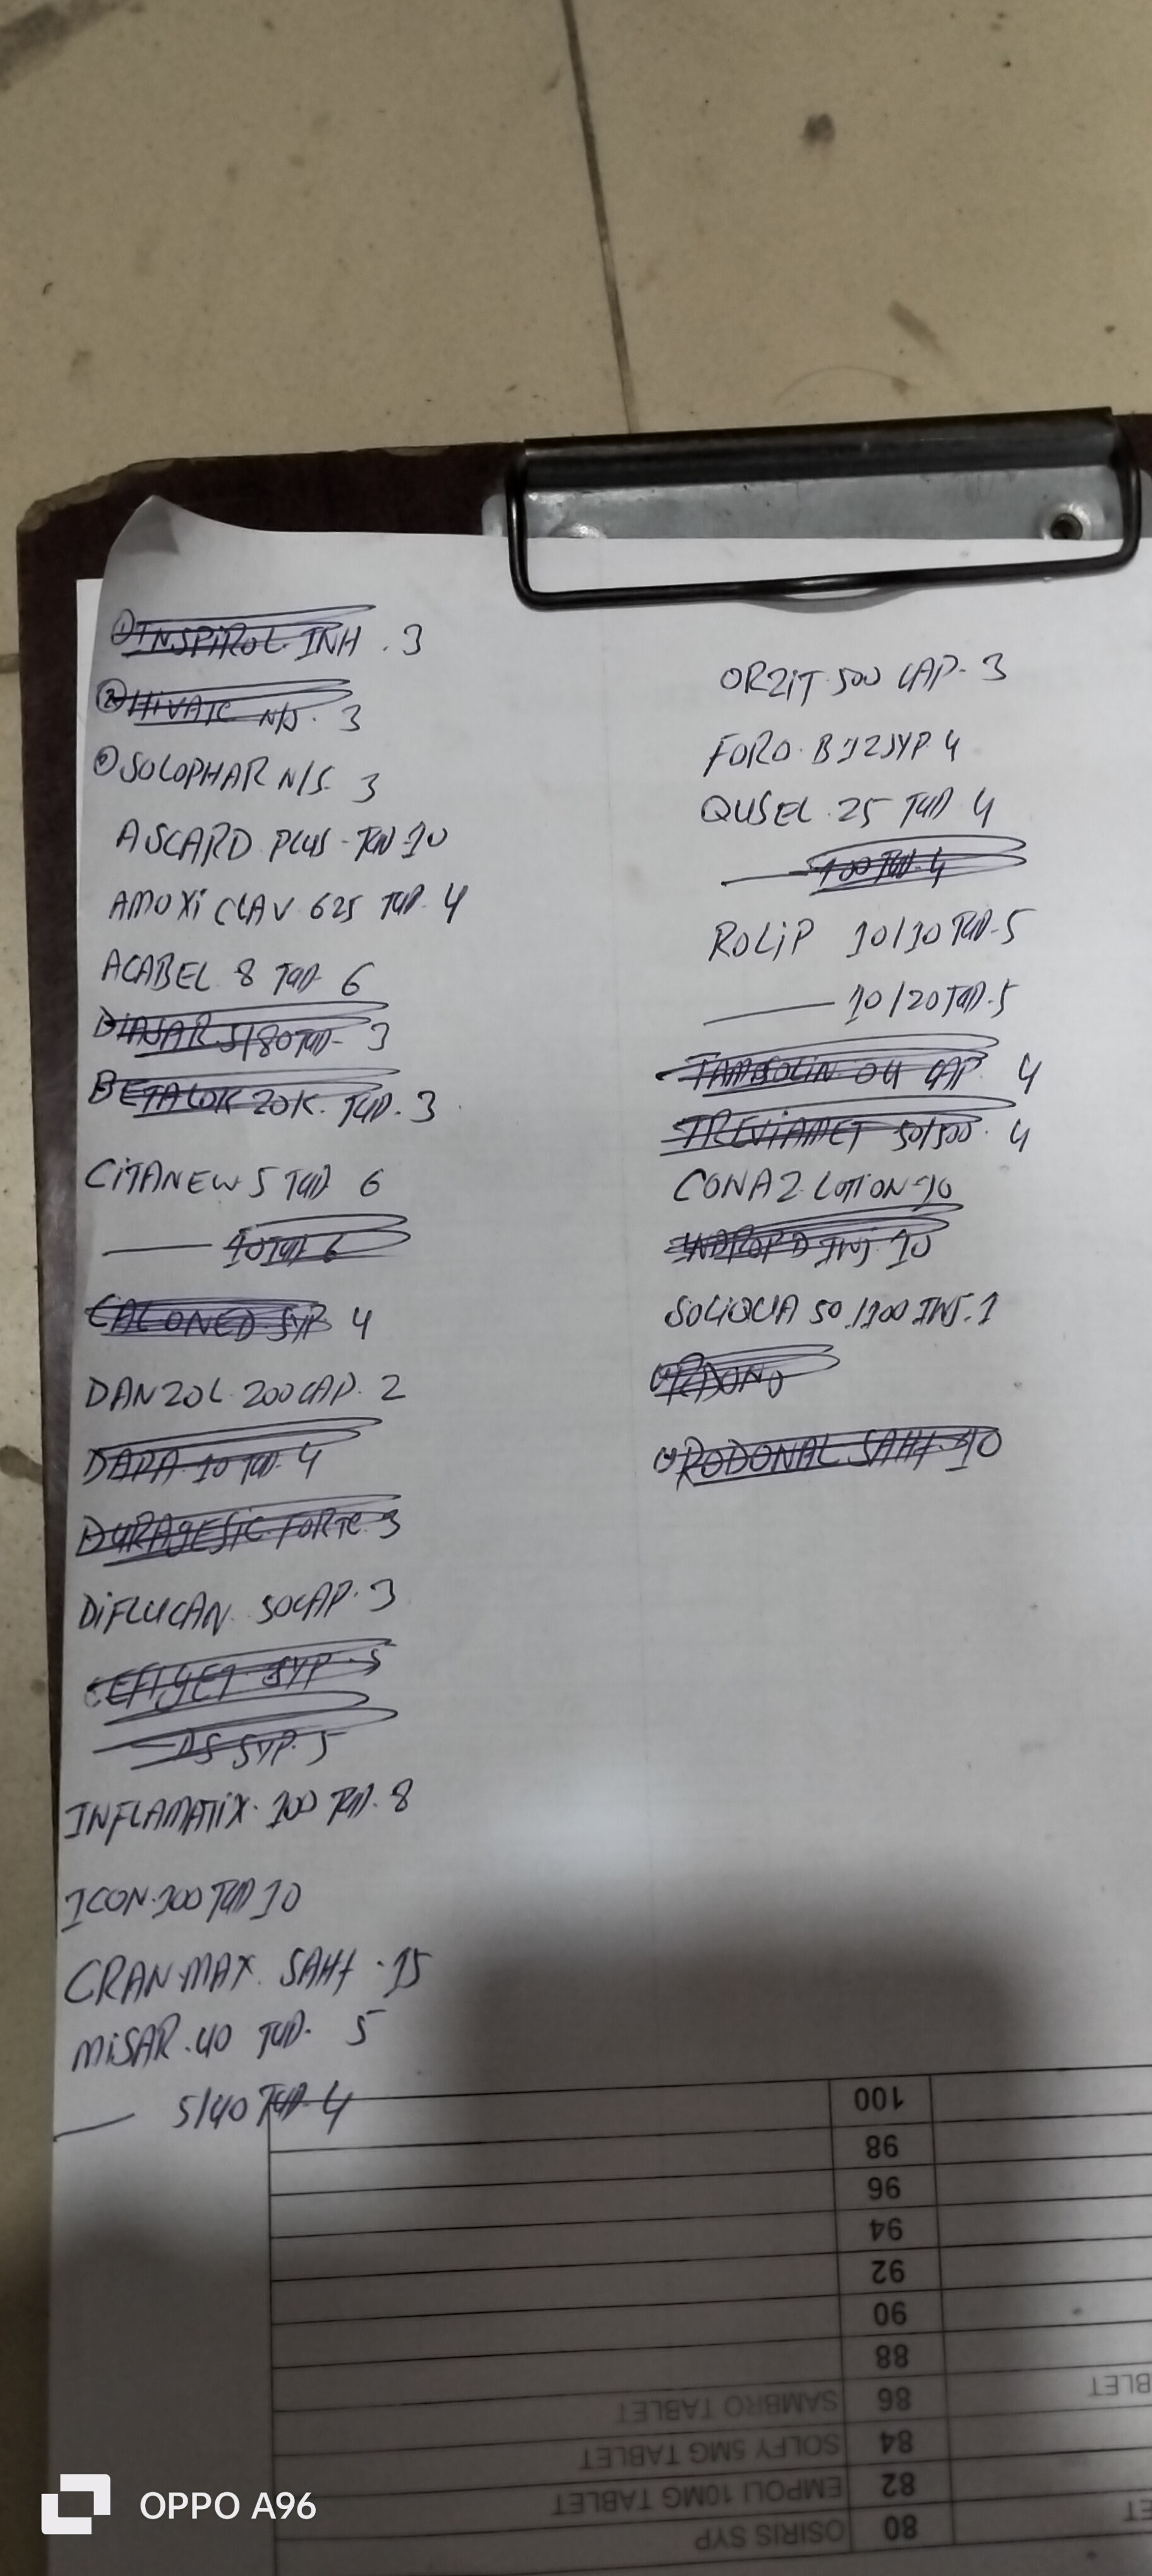 ① INSPIROL INH . 3
② HIVATE N/S . 3
SOLOPHAR N/S . 3
ASCARD PLUS - TAB 10
AMOXI CLAV 625 TAB . 4
ACABEL 8 TAB 6
5/80 TAB - 3
BETALOK ZOK . TAB . 3
CiTANEW 5 TAB 6
—— 10 TAB 6
SYP 4
DANZOL . 200 CAP . 2
DAPA . 10 TAB . 4
DURAGESIC FORTE . 3
DiFLUCAN . 50 CAP . 3
CEFIGET SYP . 5
—— DS SYP . 5
INFLAMATIX . 100 TAB . 8
ICON . 100 TAB 10
CRANMAX . SAHt . 15
MiSAR . 40 TAB . 5
—— 5/40 TAB . 4
ORZIT . 500 CAP - 3
B12 SYP . 4
QUSEL . 25 TAB 4
—— 100 TAB . 4
ROLiP 10/10 TAB - 5
—— 10/20 TAB . 5
CAP 4
TREViAMET 50/500 . 4
CONAZ LOTION - 10
INDROP D INJ . 10
SOLiQUA 50/100 INJ . 1
SAHt . 10
100
98
96
94
92
90
88
86 SAMBRO TABLET
84 SOLFY 5MG TABLET
82 EMPOLI 10MG TABLET
80 OSIRIS SYP
OPPO A96